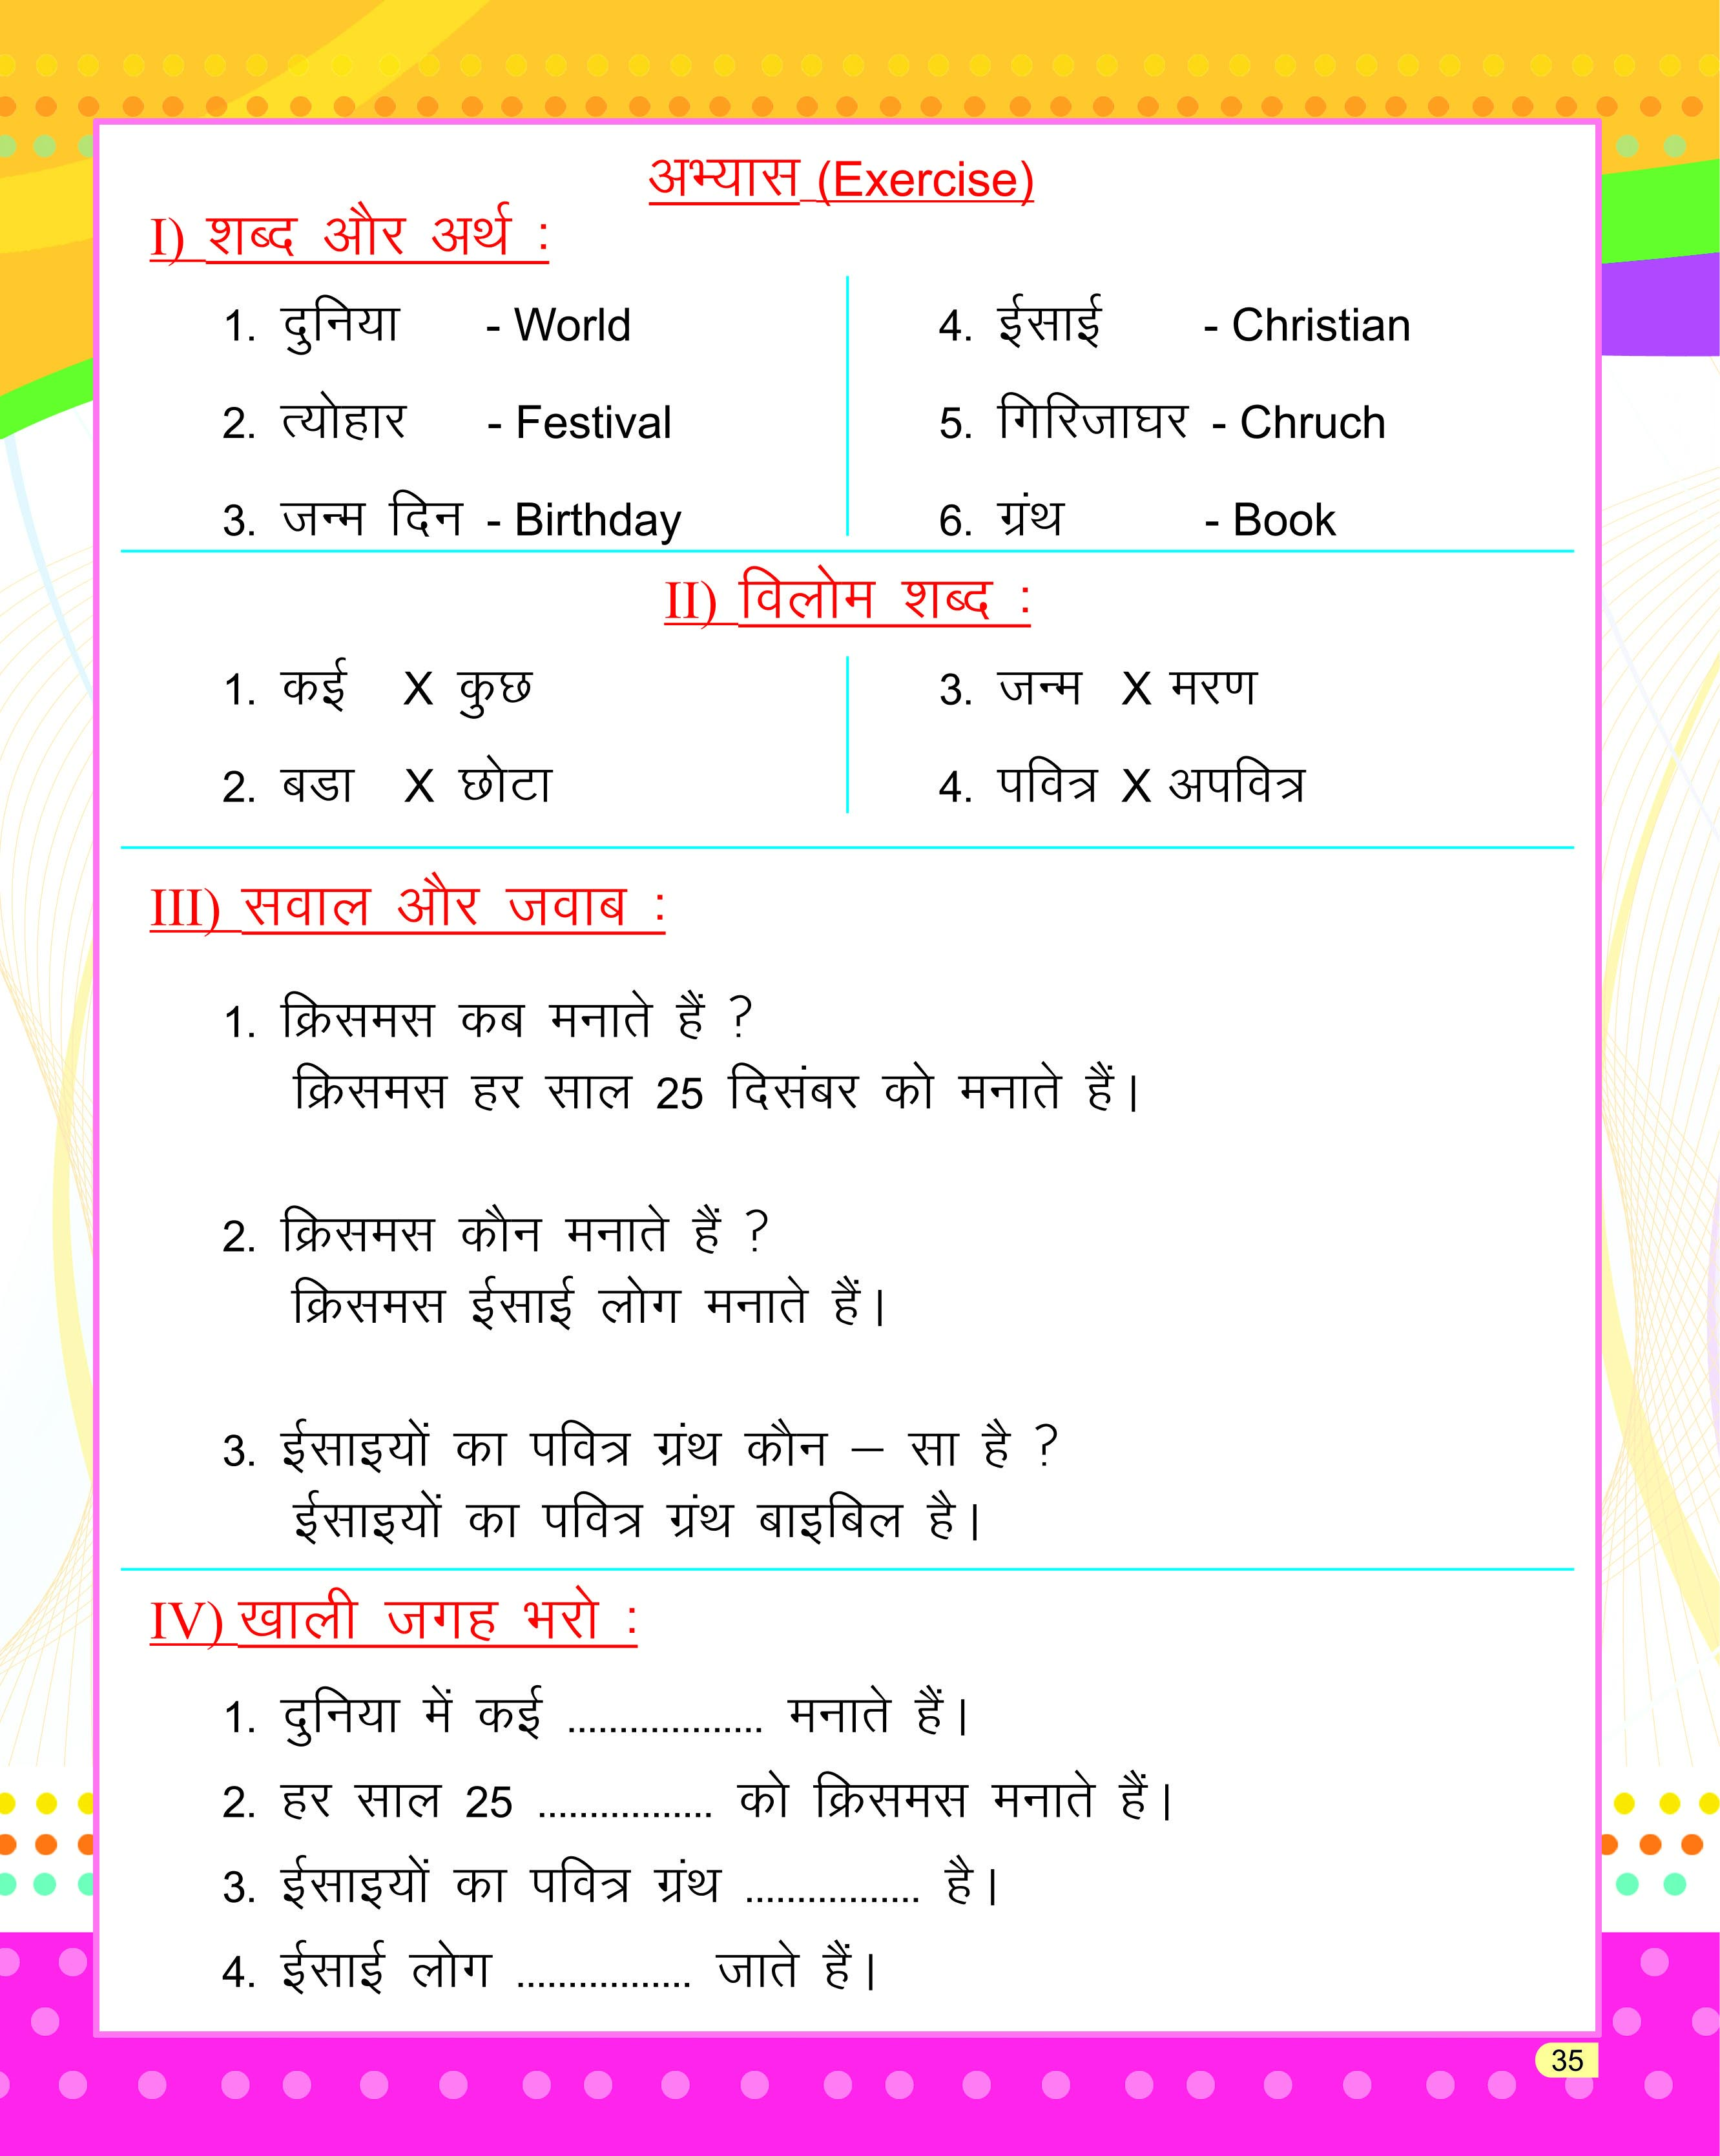 अभ्यास (Exercise)
I) शब्द और अर्थ :
1. दुनिया - World
2. त्योहार - Festival
3. जन्म दिन - Birthday
4. ईसाई - Christian
5. गिरिजाघर - Chruch
6. ग्रंथ - Book
II) विलोम शब्द :
1. कई X कुछ
2. बडा X छोटा
3. जन्म X मरण
4. पवित्र X अपवित्र
III) सवाल और जवाब :
1. क्रिसमस कब मनाते हैं ?
क्रिसमस हर साल 25 दिसंबर को मनाते हैं।
2. क्रिसमस कौन मनाते हैं ?
क्रिसमस ईसाई लोग मनाते हैं।
3. ईसाइयों का पवित्र ग्रंथ कौन – सा है ?
ईसाइयों का पवित्र ग्रंथ बाइबिल है।
IV) खाली जगह भरो :
1. दुनिया में कई ................... मनाते हैं।
2. हर साल 25 ................. को क्रिसमस मनाते हैं।
3. ईसाइयों का पवित्र ग्रंथ ................. है।
4. ईसाई लोग ................. जाते हैं।
35